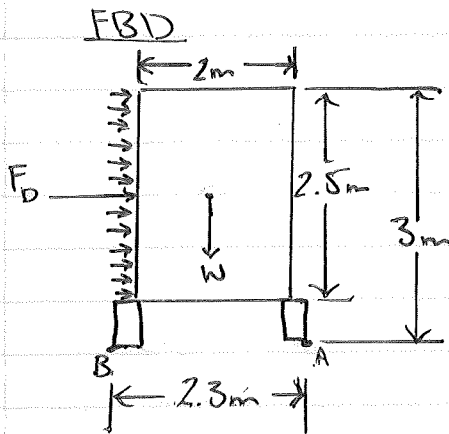 FBD
2m
F_D
2.5m
3m
W
B
A
2.3m